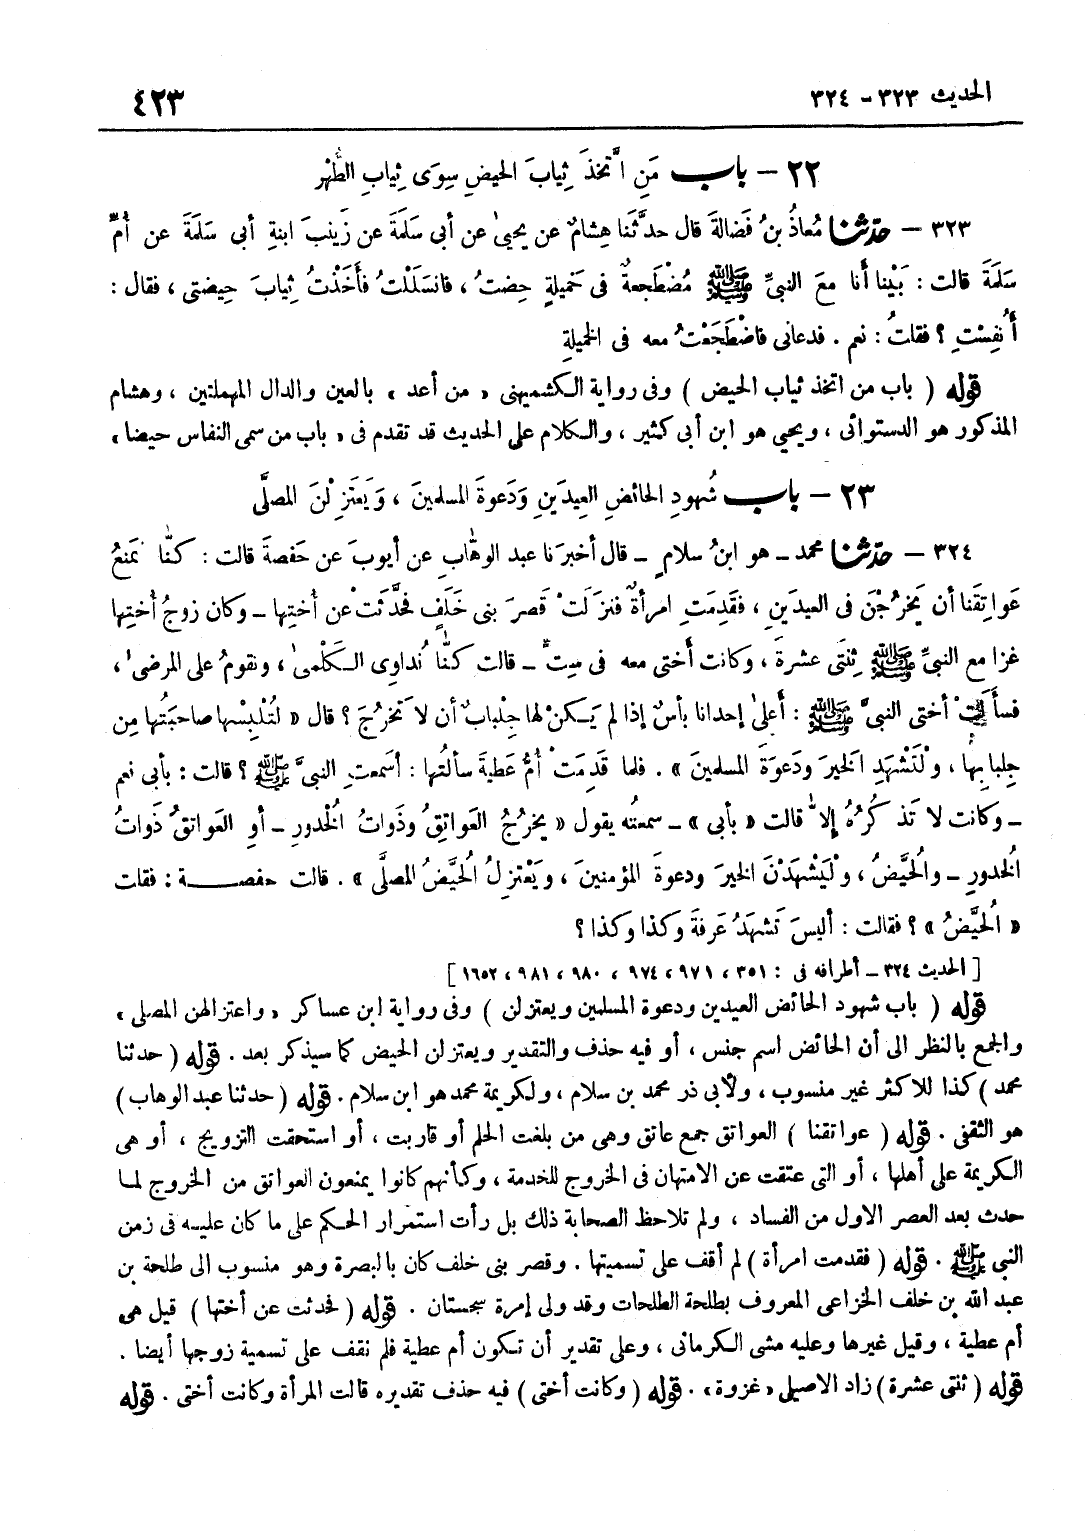 الحديث ٣٢٣ - ٣٢٤
٤٢٣
٢٢ - باب مَنِ اتَّخذَ ثِيابَ الحيضِ سِوَى ثِيابِ الطُّهْر
٣٢٣ - حدّثنا مُعاذُ بنُ فَضالةَ قال حدَّثَنا هِشامٌ عن يحيىٰ عن أبى سَلمَةَ عن زَينبَ ابنةِ أبى سَلمَةَ عن أُمِّ
سَلمَةَ قالت : بَيْنا أنا معَ النبىِّ ﷺ مُضْطَجعةٌ فى خَميلةٍ حِضتُ ، فانسَلَلْتُ فأَخَذْتُ ثِيابَ حِيضتى ، فقال :
أَنُفِسْتِ ؟ فقلتُ : نعم . فدعانى فاضْطَجَعْتُ معه فى الخميلةِ
قوله ( باب من اتخذ ثياب الحيض ) وفى رواية الكشميهنى « من أعد » بالعين والدال المهملتين ، وهشام
المذكور هو الدستوائى ، ويحيي هو ابن أبى كثير ، والكلام على الحديث قد تقدم فى « باب من سمى النفاس حيضا »
٢٣ - باب شُهودِ الحائضِ العِيدَينِ وَدَعوةَ المسلمينَ ، وَيَعتَزِلْنَ المصلَّى
٣٢٤ - حدّثنا محمد ـ هو ابنُ سلامٍ ـ قال أخبرَنا عبد الوهّاب عن أيوبَ عن حَفصةَ قالت : كنّا نمنَعُ
عَواتِقَنا أن يَخرُجْنَ فى العيدَينِ ، فقَدِمَتِ امرأةٌ فنزَلَتْ قَصرَ بنى خَلَفٍ فحدَّثَتْ عن أُختِها ـ وكان زوجُ أُختِها
غزا مع النبىِّ ﷺ ثِنتَى عشرةَ ، وكانت أُختى معه فى سِتٍّ ـ قالت كنّا نُداوِى الكَلْمىٰ ، ونقومُ على المرضىٰ ،
فسأَلَتْ أختى النبىَّ ﷺ : أَعلىٰ إحدانا بأسٌ إذا لم يَكنْ لها جِلبابٌ أن لا تَخرُجَ ؟ قال « لتُلبِسْها صاحبَتُها مِن
جِلبابِها ، ولْتَشهَدِ الخيرَ ودعوةَ المسلمينَ » . فلما قدِمَتْ أمُّ عَطيةَ سألتُها : أسَمعتِ النبىَّ ﷺ ؟ قالت : بأبى نعم
ـ وكانت لا تَذكُرُهُ إلاّ قالت « بأبى » ـ سمعتُه يقول « يَخرُجُ العَواتِقُ وذَواتُ الخُدورِ ـ أوِ العَواتقُ ذَواتُ
الخُدورِ ـ والحُيَّضُ ، ولْيَشهَدْنَ الخيرَ ودعوةَ المؤمنينَ ، ويَعْتزِلُ الحُيَّضُ المصلَّى » . قالت حفصة : فقلت
« الحُيَّضُ » ؟ فقالت : أليسَ تَشهَدُ عَرفةَ وكذا وكذا ؟
[ الحديث ٣٢٤ ـ أطرافه فى : ٣٥١ ، ٩٧١ ، ٩٧٤ ، ٩٨٠ ، ٩٨١ ، ١٦٥٢ ]
قوله ( باب شهود الحائض العيدين ودعوة المسلمين ويعتزلن ) وفى رواية ابن عساكر « واعتزالهن المصلى »
والجمع بالنظر الى أن الحائض اسم جنس ، أو فيه حذف والتقدير ويعتزلن الحيض كما سيذكر بعد . قوله ( حدثنا
محمد ) كذا للاكثر غير منسوب ، ولأبى ذر محمد بن سلام ، ولكريمة محمد هو ابن سلام . قوله ( حدثنا عبد الوهاب )
هو الثقفى . قوله ( عواتقنا ) العواتق جمع عاتق وهى من بلغت الحلم أو قاربت ، أو استحقت التزويج ، أو هى
الكريمة على أهلها ، أو التى عتقت عن الامتهان فى الخروج للخدمة ، وكأنهم كانوا يمنعون العواتق من الخروج لما
حدث بعد العصر الاول من الفساد ، ولم تلاحظ الصحابة ذلك بل رأت استمرار الحكم على ما كان عليه فى زمن
النبى ﷺ . قوله ( فقدمت امرأة ) لم أقف على تسميتها . وقصر بنى خلف كان بالبصرة وهو منسوب الى طلحة بن
عبد الله بن خلف الخزاعى المعروف بطلحة الطلحات وقد ولى إمرة سجستان . قوله ( فحدثت عن أختها ) قيل هى
أم عطية ، وقيل غيرها وعليه مشى الكرمانى ، وعلى تقدير أن تكون أم عطية فلم نقف على تسمية زوجها أيضا .
قوله ( ثنتى عشرة ) زاد الاصيلى « غزوة » . قوله ( وكانت أختى ) فيه حذف تقديره قالت المرأة وكانت أختى . قوله